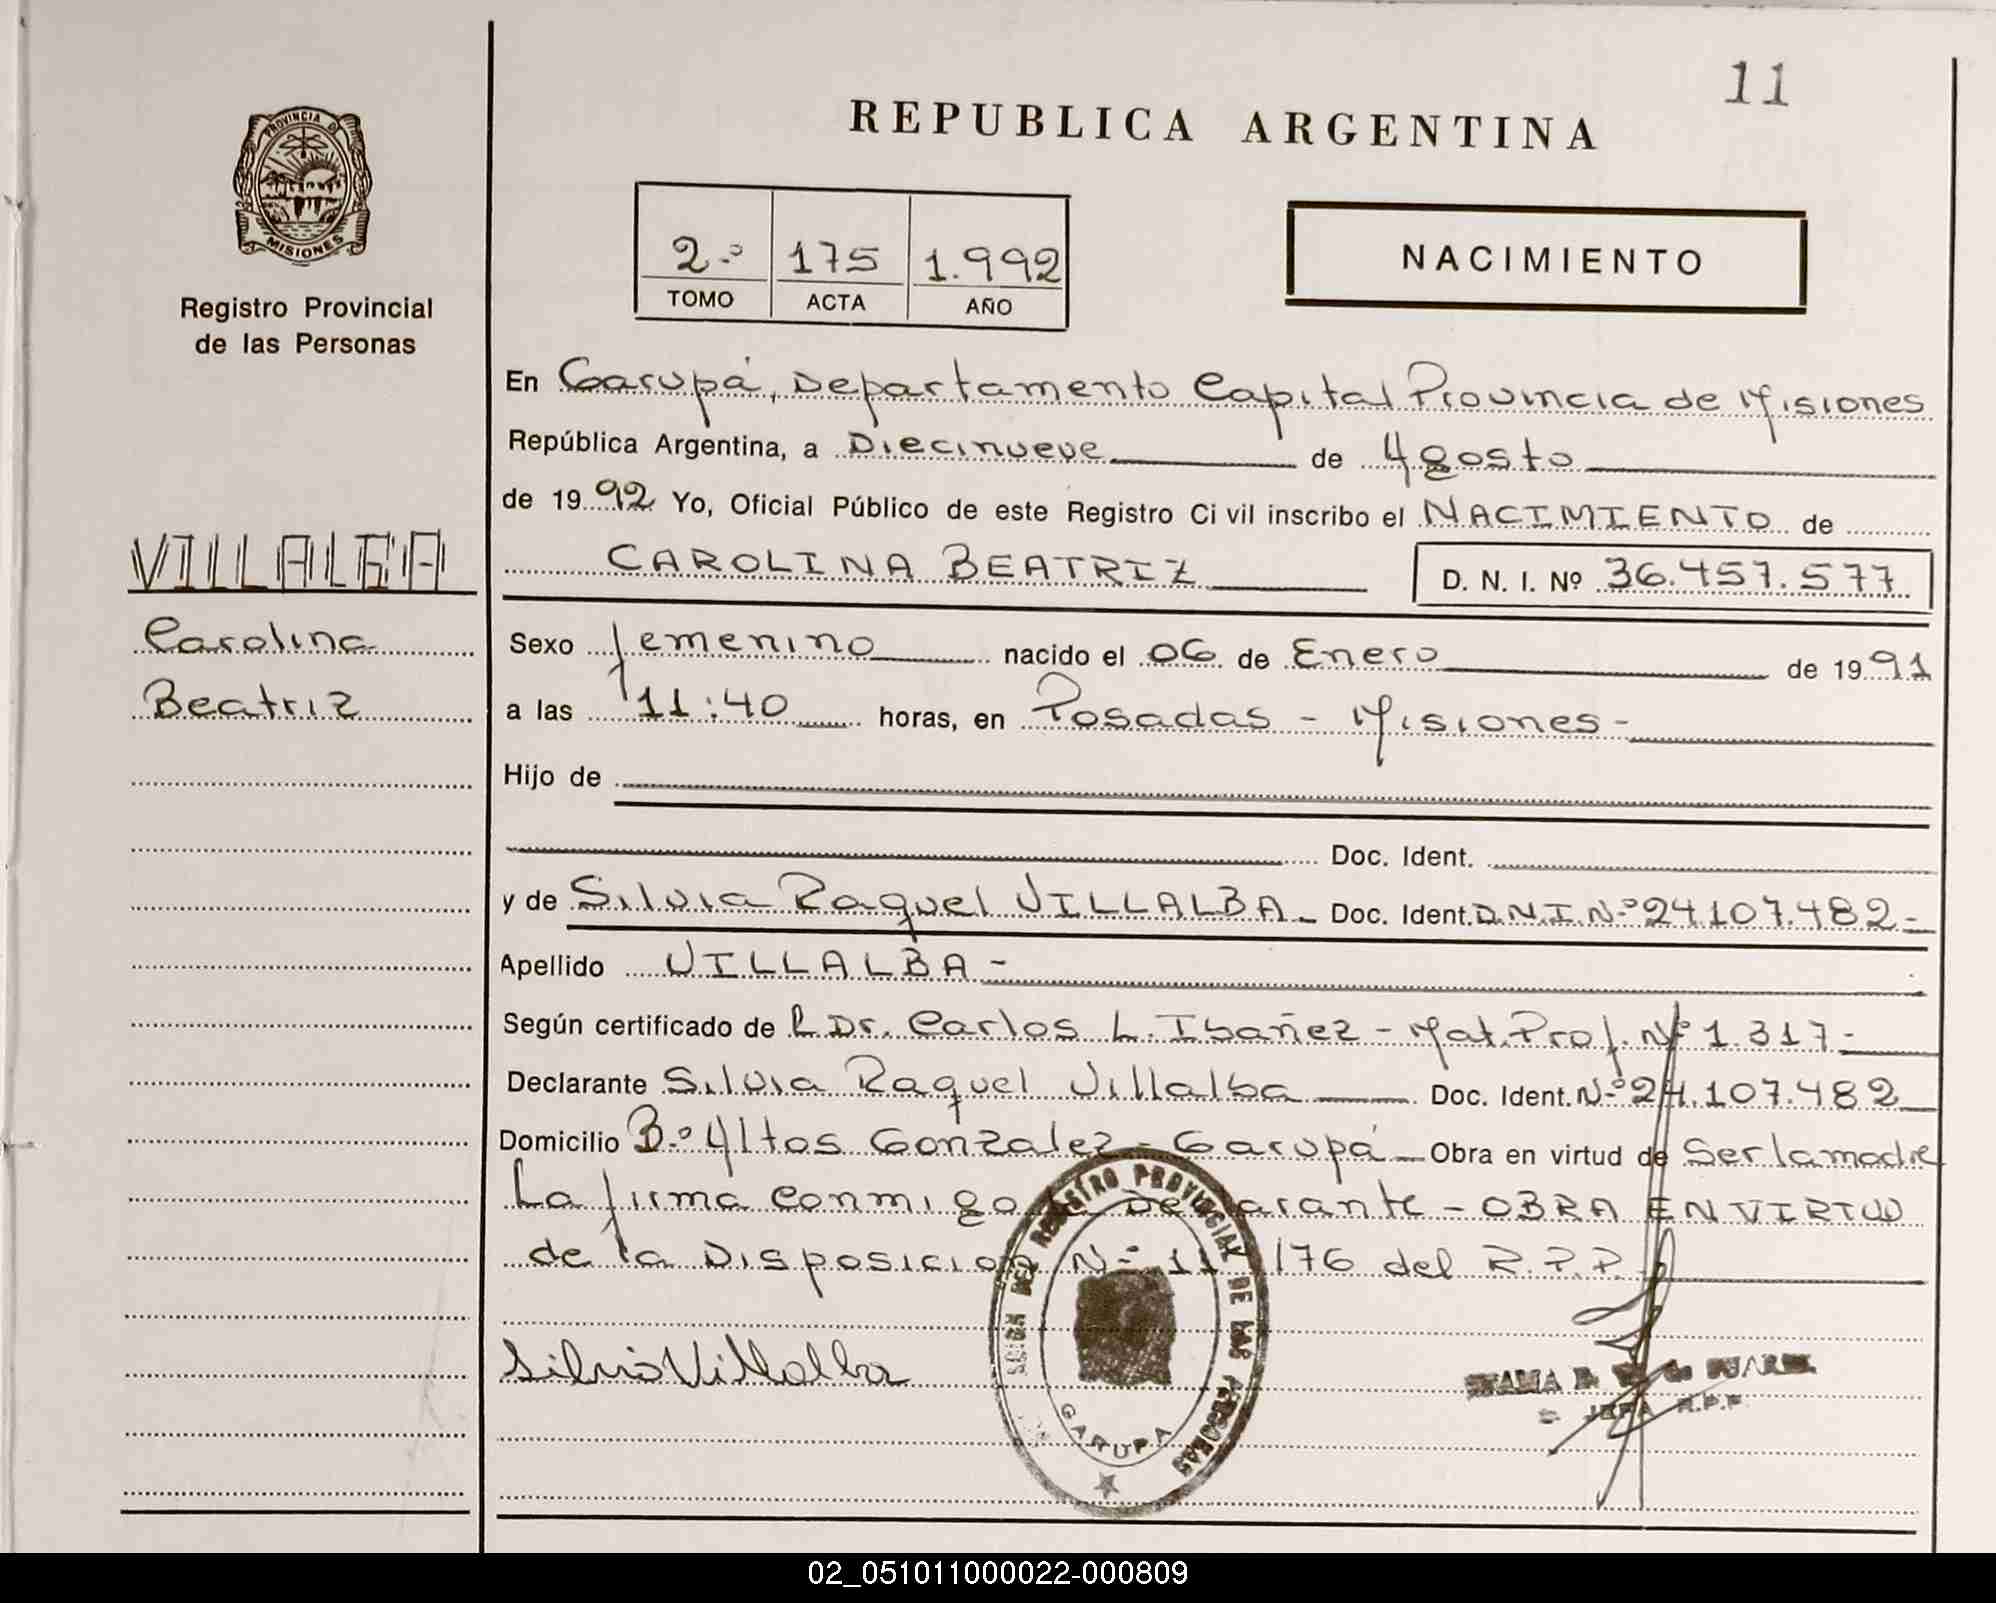 11
REPUBLICA ARGENTINA
PROVINCIA DE
MISIONES
Registro Provincial
de las Personas
2.º 175 1.992
TOMO ACTA AÑO
NACIMIENTO
En Garupá, Departamento Capital Provincia de Misiones
República Argentina, a Diecinueve de Agosto
de 1992 Yo, Oficial Público de este Registro Civil inscribo el NACIMIENTO de
CAROLINA BEATRIZ D. N. I. Nº 36.457.577
VILLALBA
Carolina
Beatriz
Sexo femenino nacido el 06 de Enero de 1991
a las 11:40 horas, en Posadas - Misiones -
Hijo de
Doc. Ident.
y de Silvia Raquel VILLALBA - Doc. Ident. D.N.I.Nº 24.107.482 -
Apellido VILLALBA -
Según certificado de l Dr. Carlos L. Ibañez - Mat. Prof. Nº 1.317 -
Declarante Silvia Raquel Villalba Doc. Ident. Nº 24.107.482
Domicilio B.º Altos Gonzalez - Garupá - Obra en virtud de Ser la madre
La firma conmigo Declarante - OBRA EN VIRTUD
de la Disposicion Nº 11 /76 del R.P.P.
Silvia Villalba
DEL REGISTRO PROVINCIAL DE LAS PERSONAS
GARUPA
JEFA R.P.P.
02_051011000022-000809